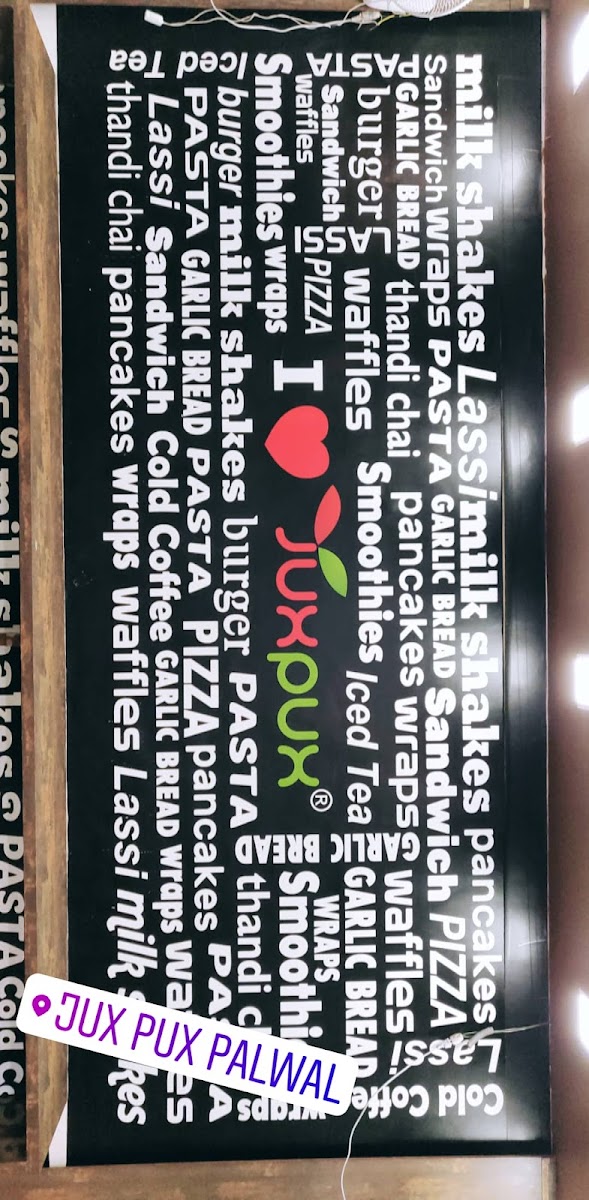 milk shakes Lassi milk shakes pancakes
Sandwich wraps PASTA GARLIC BREAD Sandwich PIZZA
Lassi
Cold Coffe
PASTA
GARLIC BREAD thandi chai pancakes wraps waffles
burger waffles Smoothies Iced Tea GARLIC BREAD
GARLIC BREAD
Sandwich LASSI
waffles PIZZA
I juxpux®
WRAPS
Smoothies wraps Smoothi
burger milk shakes burger PASTA thandi
wraps
PASTA GARLIC BREAD PASTA PIZZA pancakes
Iced Tea
Lassi Sandwich Cold Coffee GARLIC BREAD wraps
thandi chai pancakes wraps waffles Lassi milk
waffles milk shakes PASTA Cold
JUX PUX PALWAL